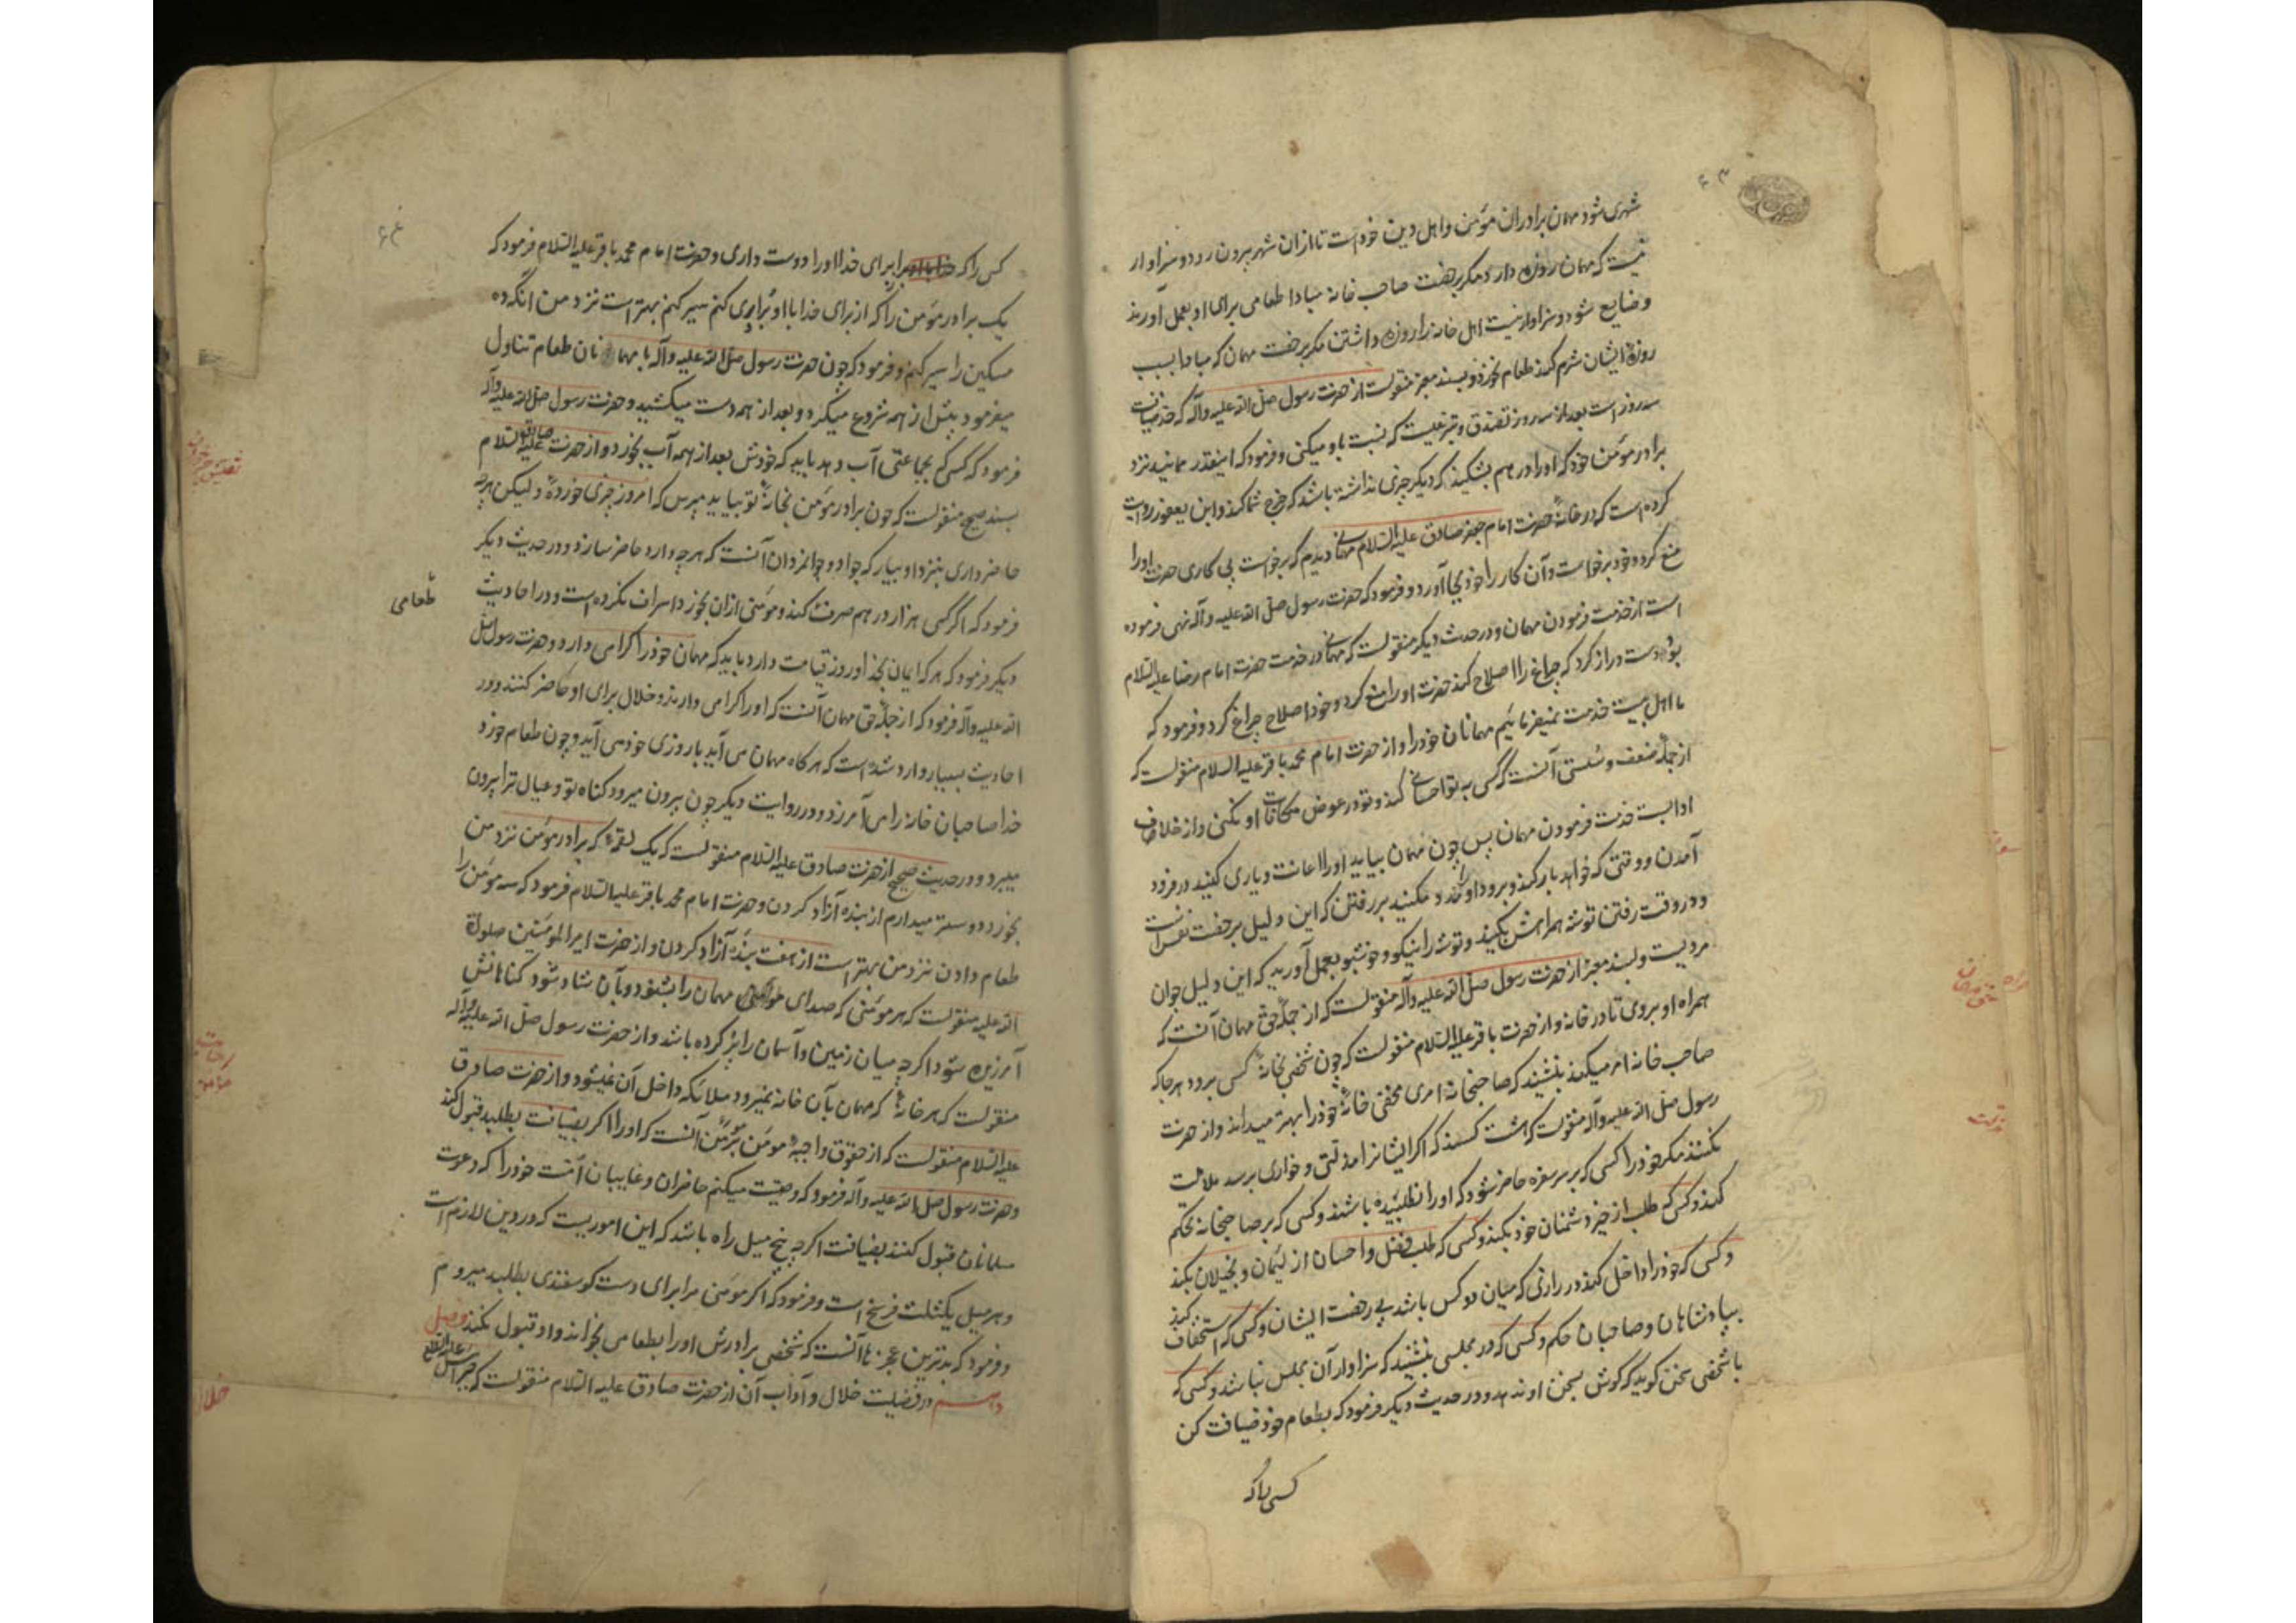 شهری شود مهمان برادران مؤمن و اهل دین خود است تا ازان شهر بیرون رود و سزاوار
نیست که مهمان روزه دارد مکر برخصت صاحب خانه مبادا طعامی برای او بعمل آورند
و ضایع شود و سزاوار نیست اهل خانه را روزه داشتن مکر برخصت مهمان که مبادا بسبب
روزهٔ ایشان شرم کند طعام نخورد و بسند معتبر منقولست از حضرت رسول صلی الله علیه وآله که حد ضیافت
سه روز است بعد از سه روز تصدق و تبرعیست که نسبت باو میکنی و فرمود که اینقدر ممانید نزد
برادر مؤمن خود که او را درهم بشکنید که دیکر چیزی نداشته باشد که خرج شما کند و ابن یعفور روایت
کرده است که در خانهٔ حضرت امام جعفر صادق علیه السلام مهمانی دیدم که برخواست پی کاری حضرت او را
منع کرد و خود برخواست و آن کار را خود بجا آورد و فرمود که حضرت رسول صلی الله علیه وآله نهی فرموده
است از خدمت فرمودن مهمان و در حدیث دیکر منقولست که مهمانی در خدمت حضرت امام رضا علیه السلام
بود دست دراز کرد که چراغ را اصلاح کند حضرت او را منع کرد و خود اصلاح چراغ کرد و فرمود که
ما اهل بیت خدمت نمیفرمائیم مهمانان خود را و از حضرت امام محمد باقر علیه السلام منقولست که
از جملهٔ ضعف و سستی آنست که کسی به تو احسانی کند و تو در عوض مکافات او نکنی و از خلاف
ادابست خدمت فرمودن مهمان پس چون مهمان بیاید او را اعانت و یاری کنید در فرود
آمدن و وقتی که خواهد بار کند و برود او را مدد مکنید بر رفتن که این دلیل بر خفت نفس است
و در وقت رفتن توشه همراهش بکنید و توشه را نیکو و خوشبو بعمل آورید که این دلیل جوان
مردیست و بسند معتبر از حضرت رسول صلی الله علیه وآله منقولست که از جملهٔ حق مهمان آنست که
همراه او بروی تا در خانه و از حضرت باقر علیه السلام منقولست که چون شخصی بخانهٔ کسی برود هر جا که
صاحب خانه امر میکند بنشیند که صاحبخانه امری مخفی خانهٔ خود را بهتر میداند و از حضرت
رسول صلی الله علیه وآله منقولست که هشت کسند که اکر ایشانرا مذلتی و خواری برسد ملامت
نکنند مکر خود را کسی که بر سر سفره حاضر شود که او را نطلبیده باشند و کسی که بر صاحبخانه تحکم
کند و کسی که طلب از خیر دشمنان خود بکند و کسی که طلب فضل و احسان از لئیمان و بخیلان بکند
و کسی که خود را داخل کند در رازی که میان دو کس باشد بی رخصت ایشان و کسی که استخفاف کند
بپادشاهان و صاحبان حکم و کسی که در مجلسی بنشیند که سزاوار آن مجلس نباشد و کسی که
با شخصی سخن کوید که کوش بسخن او ندهد و در حدیث دیکر فرمود که بطعام خود ضیافت کن
کسی را که
کسی را که برای خدا او را دوست داری و حضرت امام محمد باقر علیه السلام فرمود که
یک برادر مؤمن را که از برای خدا با او برابری کنم سیر کنم بهتر است نزد من از انکه ده
مسکین را سیر کنم و فرمود که چون حضرت رسول صلی الله علیه وآله با مهمانان طعام تناول
میفرمود پیش از همه شروع میکرد و بعد از همه دست میکشید و حضرت رسول صلی الله علیه وآله
فرمود که کسی که بجماعتی آب دهد باید که خودش بعد از همه آب بخورد و از حضرت صادق علیه السلام
بسند صحیح منقولست که چون برادر مؤمن بخانهٔ تو بیاید مپرس که امروز چیزی خوردهٔ ولیکن هرچه
حاضر داری بنزد او بیار که جواد و جوانمردان آنست که هر چه دارد حاضر سازد و در حدیث دیکر
فرمود که اکر کسی هزار درهم صرف طعامی کند و مؤمنی ازان بخورد اسراف نکرده است و در احادیث
دیکر فرمود که هر که ایمان بخدا و روز قیامت دارد باید که مهمان خود را کرامی دارد و حضرت رسول صلی
الله علیه وآله فرمود که از جملهٔ حق مهمان آنست که او را کرامی دارند و خلال برای او حاضر کنند و در
احادیث بسیار وارد شده است که هر کاه مهمان می آید با روزی خود می آید و چون طعام خورد
خدا صاحبان خانه را می آمرزد و در روایت دیکر چون بیرون میرود کناه تو و عیال ترا بیرون
میبرد و در حدیث صحیح از حضرت صادق علیه السلام منقولست که یک لقمهٔ که برادر مؤمن نزد من
بخورد دوستر میدارم از بنده آزاد کردن و حضرت امام محمد باقر علیه السلام فرمود که سه مؤمن را
طعام دادن نزد من بهتر است از هفت بنده آزاد کردن و از حضرت امیر المؤمنین صلوة
الله علیه منقولست که هر مؤمنی که صدای مهمان را بشنود و بآن شاد شود کناهانش
آمرزیده شود اکرچه میان زمین و آسمان را پر کرده باشد و از حضرت رسول صلی الله علیه وآله
منقولست که هر خانهٔ که مهمان بآن خانه نمیرود ملائکه داخل آن نمیشود و از حضرت صادق
علیه السلام منقولست که از حقوق واجبهٔ مومن بر مؤمن آنست که او را اکر بضیافت بطلبد قبول کند
و حضرت رسول صلی الله علیه وآله فرمود که وصیت میکنم حاضران و غایبان امت خود را که دعوت
مسلمانان قبول کنند بضیافت اکر چه پنج میل راه باشد که این اموریست که در دین لازم است
و هر میل یکثلث فرسخ است و فرمود که اکر مومنی مرا برای دست کوسفندی بطلبد میروم
و فرمود که بدترین عجزها آنست که شخصی برادرش او را بطعامی بخواند و او قبول نکند فصل
دهم در فضیلت خلال و آداب آن از حضرت صادق علیه السلام منقولست که جبرائیل علیه السلام
طعامی
خلال